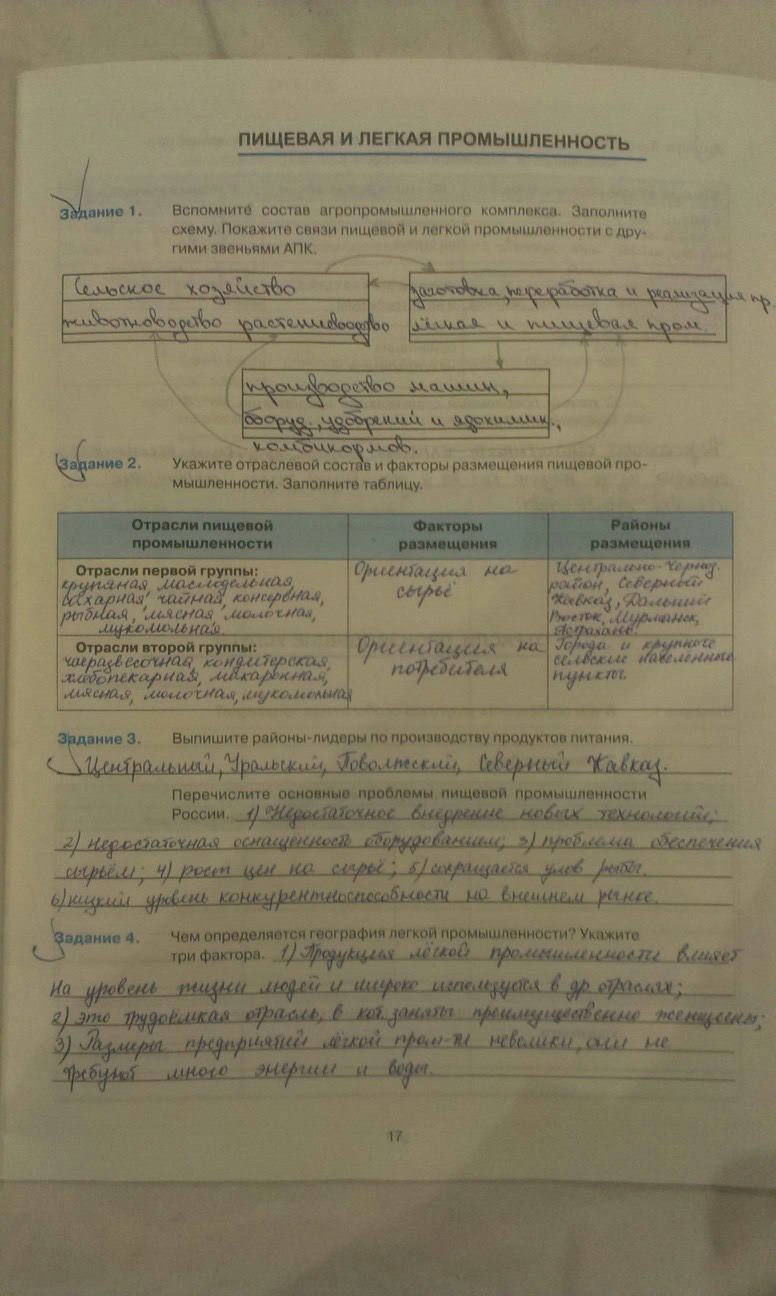 ПИЩЕВАЯ И ЛЕГКАЯ ПРОМЫШЛЕННОСТЬ
Задание 1. Вспомните состав агропромышленного комплекса. Заполните
схему. Покажите связи пищевой и легкой промышленности с дру-
гими звеньями АПК.
Сельское хозяйство
животноводство растениеводство
заготовка, переработка и реализация пр.
лёгкая и пищевая пром.
производство машин,
оборуд., удобрений и ядохимик.,
комбикормов.
Задание 2. Укажите отраслевой состав и факторы размещения пищевой про-
мышленности. Заполните таблицу.
Отрасли пищевой
промышленности
Факторы
размещения
Районы
размещения
Отрасли первой группы:
крупяная, маслодельная,
сахарная, чайная, консервная,
рыбная, мясная, молочная,
мукомольная.
Ориентация на
сырьё
Центрально-Черноз.
район, Северный
Кавказ, Дальний
Восток, Мурманск,
Астрахань.
Отрасли второй группы:
чаеразвесочная, кондитерская,
хлебопекарная, макаронная,
мясная, молочная, мукомольная
Ориентация на
потребителя
Города и крупные
сельские населённые
пункты.
Задание 3. Выпишите районы-лидеры по производству продуктов питания.
Центральный, Уральский, Поволжский, Северный Кавказ.
Перечислите основные проблемы пищевой промышленности
России. 1) Недостаточное внедрение новых технологий;
2) недостаточная оснащённость оборудованием; 3) проблема обеспечения
сырьём; 4) рост цен на сырьё; 5) сокращается улов рыбы.
6) низкий уровень конкурентноспособности на внешнем рынке.
Задание 4. Чем определяется география легкой промышленности? Укажите
три фактора. 1) Продукция лёгкой промышленности влияет
на уровень жизни людей и широко используются в др. отраслях;
2) это трудоёмкая отрасль, в кот. заняты преимущественно женщины;
3) Размеры предприятий лёгкой пром-ти невелики, они не
требуют много энергии и воды.
17